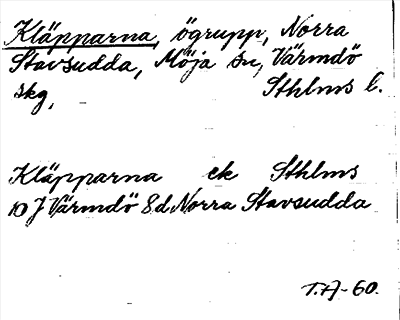 Kläpparna, ögrupp, Norra
Stavsudda, Möja sn, Värmdö
skg, Sthlms l.
Kläpparna ek Sthlms
10 J Värmdö 8 d Norra Stavsudda
T.A-60.